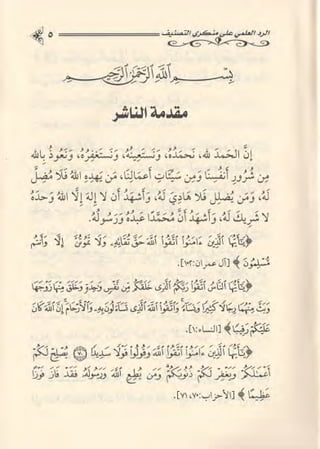 الرد العلمي على منكري التصنيف
٥
بِسْمِ اللَّهِ الرَّحْمَنِ الرَّحِيمِ
مقدمة الناشر
إِنَّ الحَمدَ لله، نَحمَدُهُ، وَنَستَعِينُهُ، وَنَستَغفِرُهُ، وَنَعُوذُ بِالله
مِن شُرُورِ أَنفُسِنَا وَمِن سَيِّئَاتِ أَعمَالِنَا، مَن يَهدِهِ اللهُ فَلَا مُضِلَّ
لَهُ، وَمَن يُضلِل فَلَا هَادِيَ لَهُ، وَأَشهَدُ أَن لَا إِلَهَ إِلَّا اللهُ وَحدَهُ
لَا شَرِيكَ لَهُ، وَأَشهَدُ أَنَّ مُحَمَّدًا عَبدُهُ وَرَسُولُهُ.
﴿يَٰٓأَيُّهَا ٱلَّذِينَ ءَامَنُوا۟ ٱتَّقُوا۟ ٱللَّهَ حَقَّ تُقَاتِهِۦ وَلَا تَمُوتُنَّ إِلَّا وَأَنتُم
مُّسْلِمُونَ﴾ [آل عمران:١٠٢].
﴿يَٰٓأَيُّهَا ٱلنَّاسُ ٱتَّقُوا۟ رَبَّكُمُ ٱلَّذِى خَلَقَكُم مِّن نَّفْسٍ وَٰحِدَةٍ وَخَلَقَ مِنْهَا زَوْجَهَا
وَبَثَّ مِنْهُمَا رِجَالًا كَثِيرًا وَنِسَآءً وَٱتَّقُوا۟ ٱللَّهَ ٱلَّذِى تَسَآءَلُونَ بِهِۦ وَٱلْأَرْحَامَ إِنَّ ٱللَّهَ كَانَ
عَلَيْكُمْ رَقِيبًا﴾ [النساء:١].
﴿يَٰٓأَيُّهَا ٱلَّذِينَ ءَامَنُوا۟ ٱتَّقُوا۟ ٱللَّهَ وَقُولُوا۟ قَوْلًا سَدِيدًا ٧٠ يُصْلِحْ لَكُمْ
أَعْمَٰلَكُمْ وَيَغْفِرْ لَكُمْ ذُنُوبَكُمْ وَمَن يُطِعِ ٱللَّهَ وَرَسُولَهُۥ فَقَدْ فَازَ فَوْزًا
عَظِيمًا﴾ [الأحزاب:٧٠، ٧١].